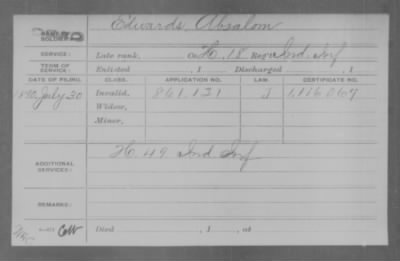 Edwards, Absalom
NAME OF SOLDIER:
SERVICE: Late rank, Co. H, 18 Reg't Ind. Inf
TERM OF SERVICE: Enlisted , 1 Discharged , 1
DATE OF FILING. CLASS. APPLICATION NO. LAW. CERTIFICATE NO.
1890 July 30 Invalid, 861.131 J 1,116,067
Widow,
Minor,
ADDITIONAL SERVICES: H. 49 Ind Inf
REMARKS:
Died , 1 , at